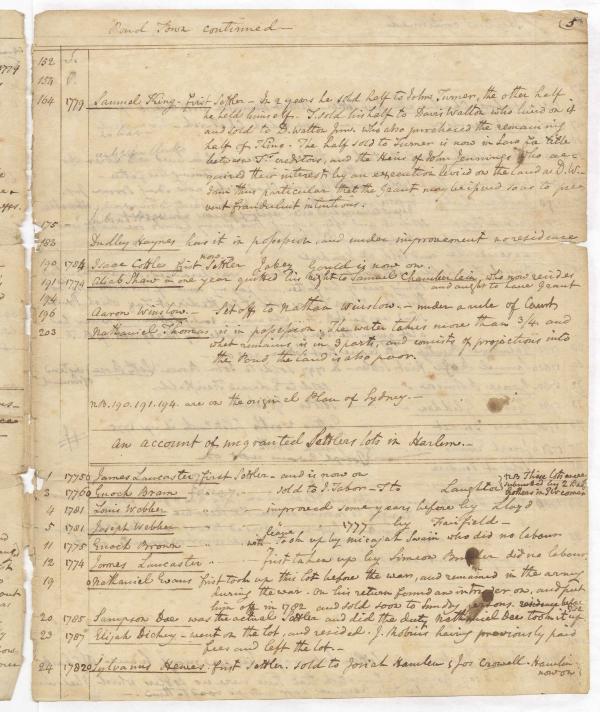 Pond Town continued — 5
152
154
164 1779 Samuel King - first Settler - In 2 years he sold half to John Turner, the other half
he held himself. T. sold his half to Davis Walton who lived on it
and sold to D. Walton Junr. who also purchased the remaining
half of King. The half sold to Turner is now in Law for title
between Ts. creditors, and the Heirs of John Jennings who ac-
quired their interest by an execution levied on the land as D. W.
I am thus particular that the Grant may be issued so as to pre
vent fraudulent intentions.
175
183 Dudley Haynes has it in possession, and under improvement no residence
190 1784 Isaac Cottle first Settler Jabez Gould is now on.
now
191 1779 Oliab Shaw in one year quitted his right to Samuel Chamberlain, who now resides
194 and ought to have Grant
196 Aaron Winslow. — Set off to Nathan Winslow. — under a rule of Court
203 Nathaniel Thomas is in possession, The water takes more than 3/4, and
what remains is in 3 parts, and consists of projections into
the Pond, the land is also poor.
NB. 190. 191. 194. are on the original Plan of Sydney. —
An account of ungranted Settlers lots in Harlem. —
1 1775 James Lancaster first Settler — and is now on
3 1776 Enoch Bram sold to J. Tabor - T to Laughton
NB These lots were
submitted by 2 Bad
4 1781 Louis Webber improved some years before by Lloyd
5 1781 Joseph Webber 1777 by Fairfield —
11 1775 Enoch Brown with taken up by micajah Swain who did no labour
12 1774 James Lancaster first taken up by Simeon did no labour
19 Nathaniel Evans first took up this lot before the war, and remained in the army
during the war. On his return found an intruder on, and put
him off in 1792 and sold soon to Sundry persons.
20 1785 Sampson Doe was the actual Settler and did the duty Nathaniel Dee took it up
23 1787 Elijah Dickey - went on the lot, and resided. J. Robins having previously paid
fees and left the lot. —
24 1782 Sylvanus Hewes first Settler. sold to Josiah Hamlen & Jos Crowell - Hamlin
now on